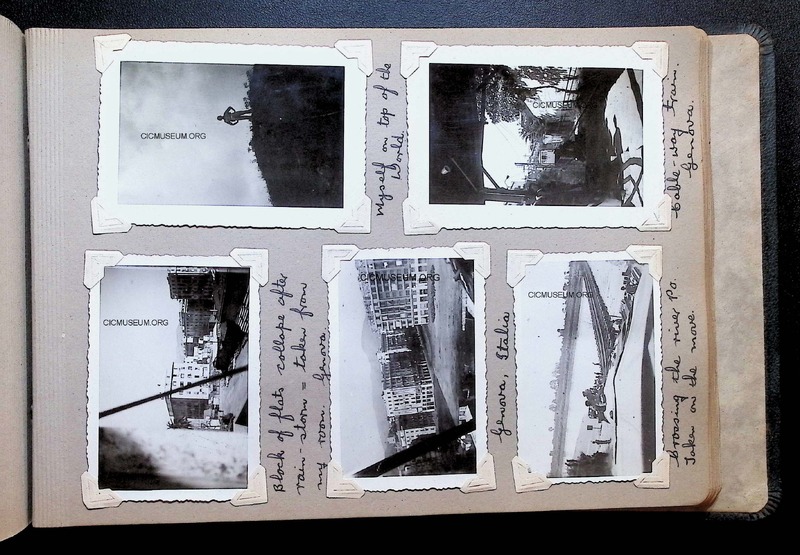 CICMUSEUM.ORG
Myself on top of the
World.
CICMUSEUM.ORG
Cable-way train.
Genova.
CICMUSEUM.ORG
Block of flats collapse after
rain-storm = taken from
my room. Genova.
CICMUSEUM.ORG
Genova, Italia
CICMUSEUM.ORG
Crossing the river Po.
Taken on the move.